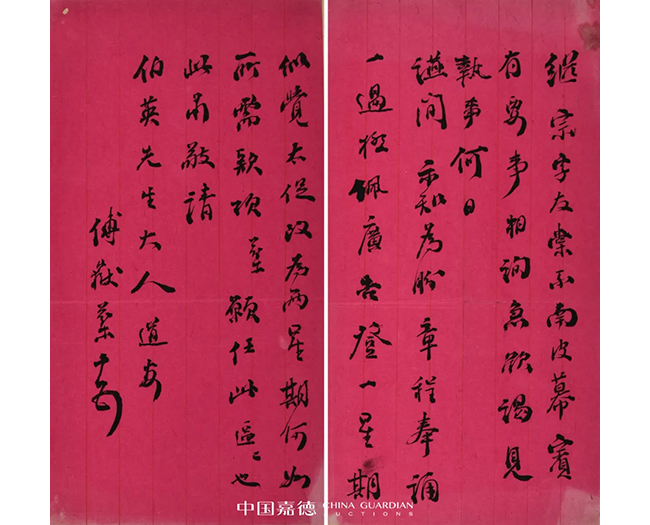 繼宗字友棠系南皮幕賓
有要事相詢急欲謁見
執事何日
讌間示知為盼章程奉誦
一過極佩廣告登一星期
似覺太促改為兩星期何如
所需款項棻願任此區〻也
此肅敬請
伯英先生大人道安
傅嶽棻
中国嘉德 CHINA GUARDIAN AUCTIONS